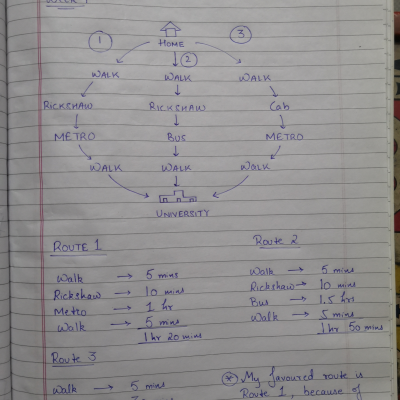 1
3
HOME
2
WALK WALK WALK
RICKSHAW RICKSHAW Cab
METRO BUS METRO
WALK WALK WALK
UNIVERSITY
ROUTE 1
Walk → 5 mins
Rickshaw → 10 mins
Metro → 1 hr
Walk → 5 mins
1 hr 20 mins
Route 2
Walk → 5 mins
Rickshaw → 10 mins
Bus → 1.5 hrs
Walk → 5 mins
1 hr 50 mins
Route 3
Walk → 5 mins
* My favoured route is
Route 1, because of